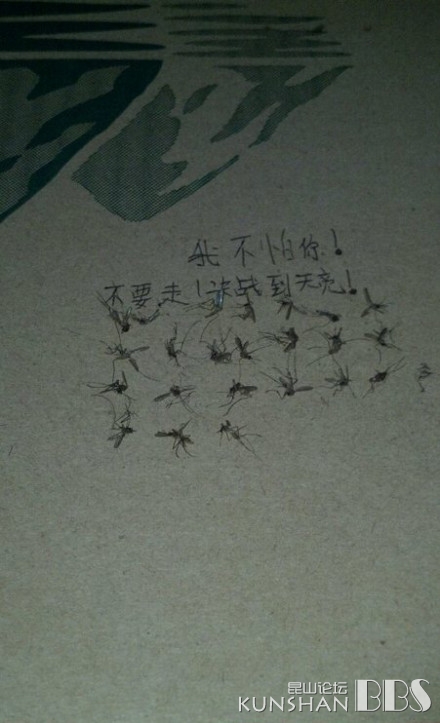 我不怕你!
不要走!决战到天亮!
昆山论坛
KUNSHAN BBS